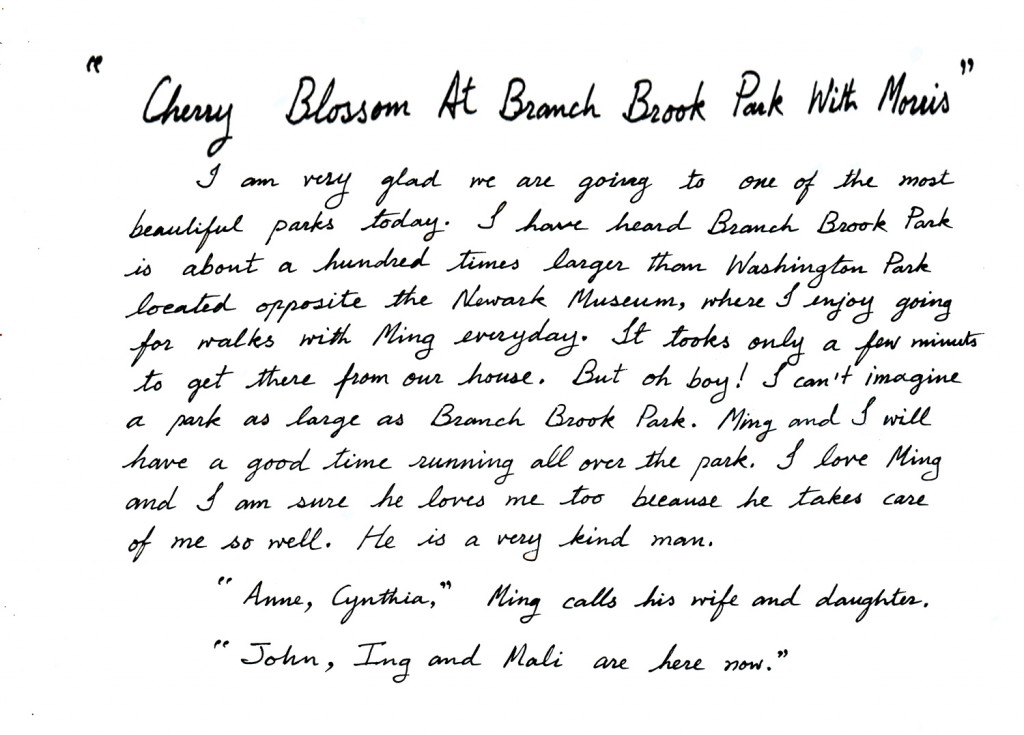 "Cherry Blossom At Branch Brook Park With Morris"
I am very glad we are going to one of the most
beautiful parks today. I have heard Branch Brook Park
is about a hundred times larger than Washington Park
located opposite the Newark Museum, where I enjoy going
for walks with Ming everyday. It tooks only a few minuts
to get there from our house. But oh boy! I can't imagine
a park as large as Branch Brook Park. Ming and I will
have a good time running all over the park. I love Ming
and I am sure he loves me too because he takes care
of me so well. He is a very kind man.
"Anne, Cynthia," Ming calls his wife and daughter.
"John, Ing and Mali are here now."